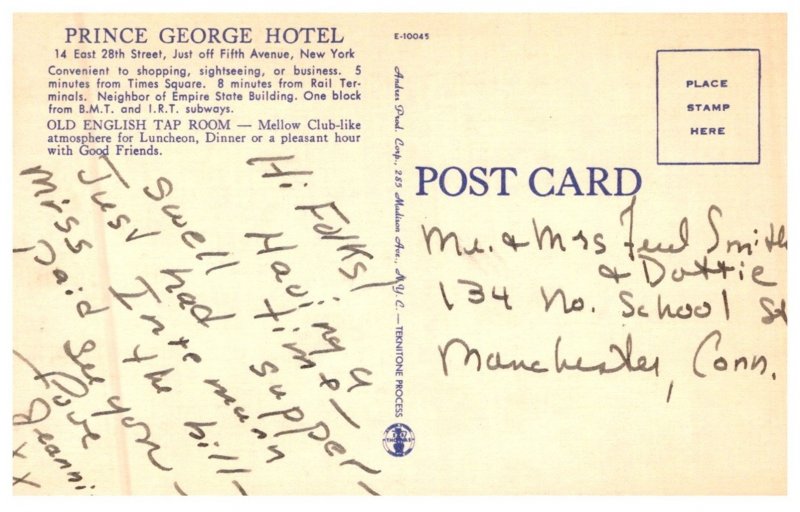 PRINCE GEORGE HOTEL
14 East 28th Street, Just off Fifth Avenue, New York
Convenient to shopping, sightseeing, or business. 5
minutes from Times Square. 8 minutes from Rail Ter-
minals. Neighbor of Empire State Building. One block
from B.M.T. and I.R.T. subways.
OLD ENGLISH TAP ROOM — Mellow Club-like
atmosphere for Luncheon, Dinner or a pleasant hour
with Good Friends.
Hi Folks!
Having a
swell time –
Just had supper –
Miss Intemann
Paid the bill –
see you –
Love
Jeanni
x x
E-10045
Andres Prod. Corp., 285 Madison Ave., N.Y.C. — TEKNITONE PROCESS
PLACE
STAMP
HERE
POST CARD
Mr. & Mrs Fred Smith
& Dottie
134 No. School St
Manchester, Conn.